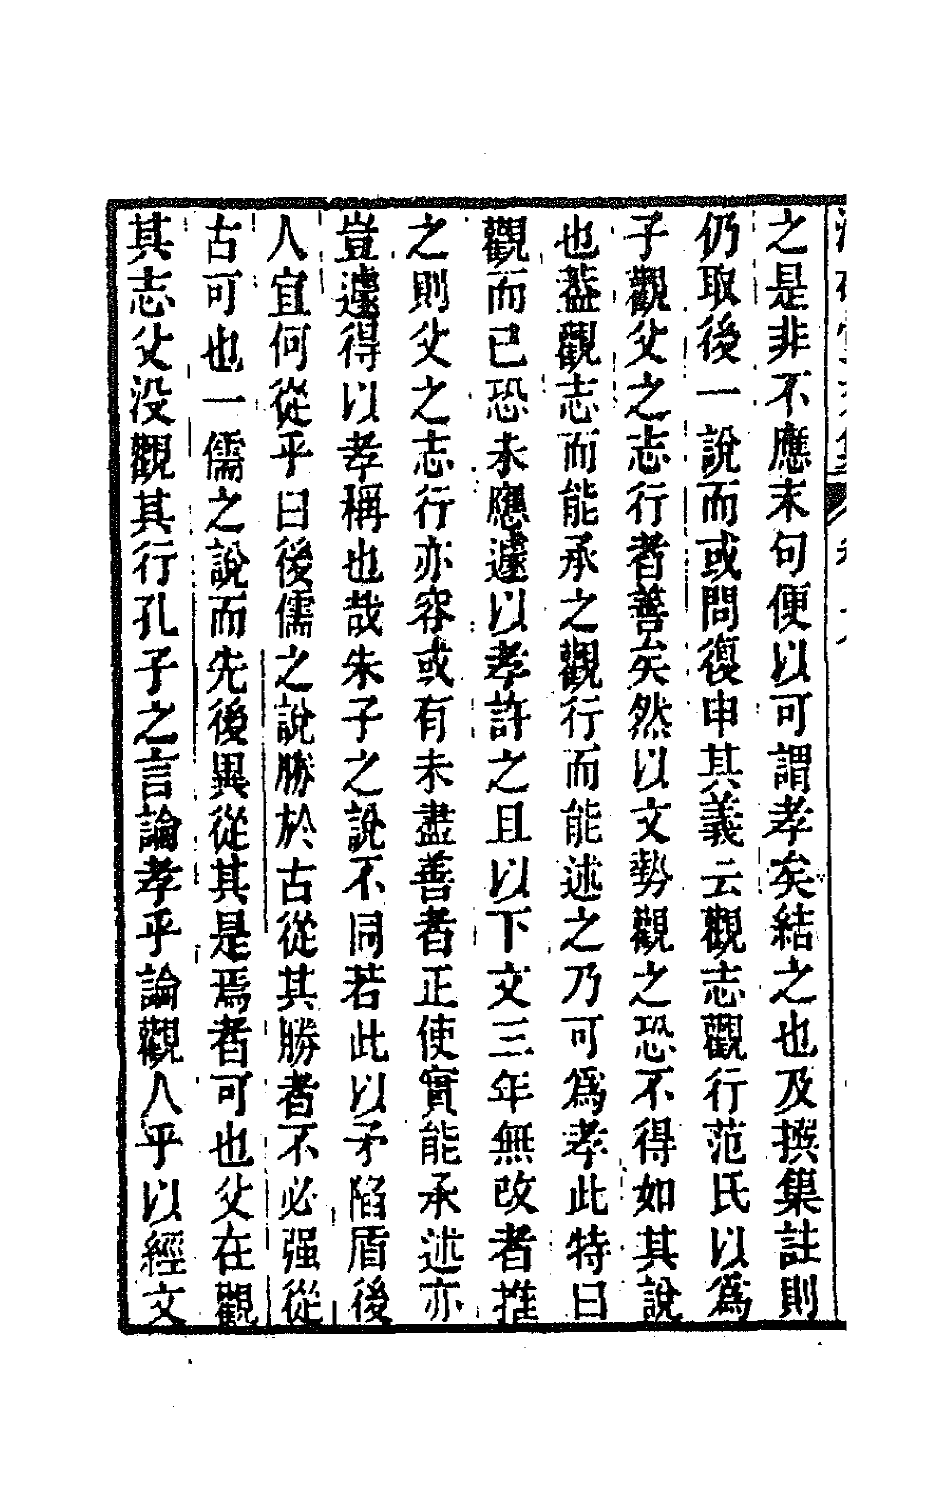 之是非不應末句便以可謂孝矣結之也及撰集註則
仍取後一說而或問復申其義云觀志觀行范氏以爲
子觀父之志行者善矣然以文勢觀之恐不得如其說
也葢觀志而能承之觀行而能述之乃可爲孝此特曰
觀而已恐未應遽以孝許之且以下文三年無改者推
之則父之志行亦容或有未盡善者正使實能承述亦
豈遽得以孝稱也哉朱子之說不同若此以矛陷盾後
人宜何從乎曰後儒之說勝於古從其勝者不必强從
古可也一儒之說而先後異從其是焉者可也父在觀
其志父没觀其行孔子之言論孝乎論觀人乎以經文